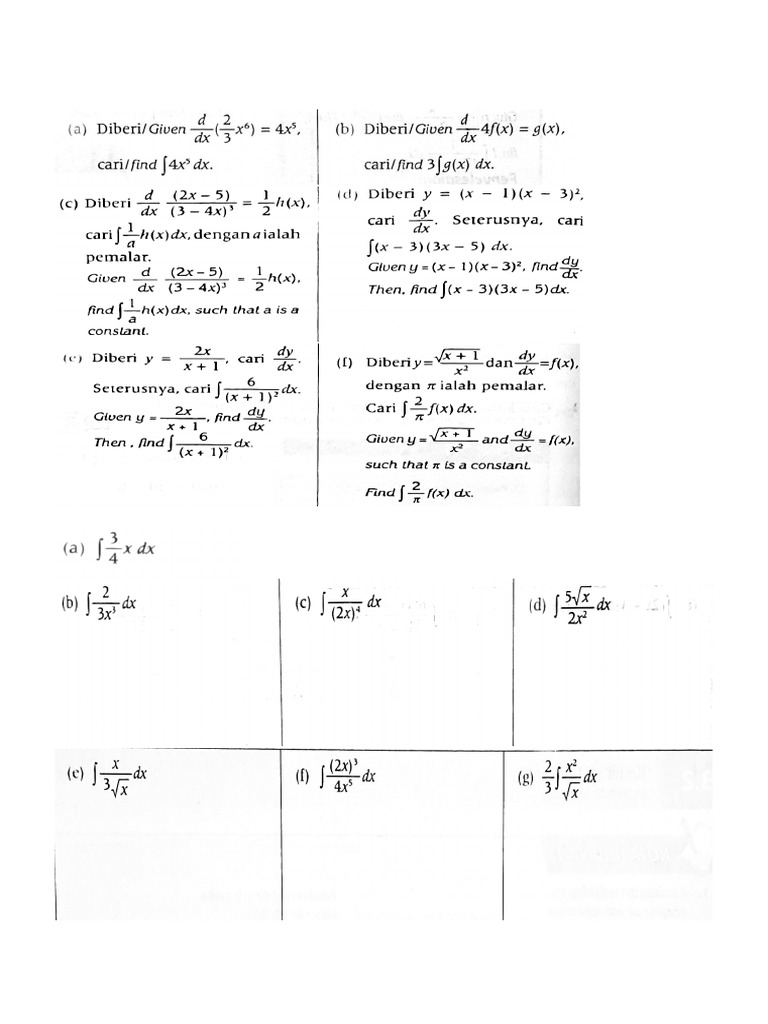 (a) Diberi/Given d/dx(2/3 x⁶) = 4x⁵,
cari/find ∫4x⁵ dx.
(b) Diberi/Given d/dx 4f(x) = g(x),
cari/find 3∫g(x) dx.
(c) Diberi d/dx (2x – 5)/(3 – 4x)³ = 1/2 h(x),
cari ∫1/a h(x) dx, dengan a ialah
pemalar.
Given d/dx (2x – 5)/(3 – 4x)³ = 1/2 h(x),
find ∫1/a h(x) dx, such that a is a
constant.
(d) Diberi y = (x – 1)(x – 3)²,
cari dy/dx. Seterusnya, cari
∫(x – 3)(3x – 5) dx.
Given y = (x – 1)(x – 3)², find dy/dx.
Then, find ∫(x – 3)(3x – 5)dx.
(e) Diberi y = 2x/(x + 1), cari dy/dx.
Seterusnya, cari ∫6/(x + 1)² dx.
Given y = 2x/(x + 1), find dy/dx.
Then , find ∫6/(x + 1)² dx.
(f) Diberi y = √(x + 1)/x² dan dy/dx = f(x),
dengan π ialah pemalar.
Cari ∫2/π f(x) dx.
Given y = √(x + 1)/x² and dy/dx = f(x),
such that π is a constant.
Find ∫2/π f(x) dx.
(a) ∫3/4 x dx
(b) ∫2/3x³ dx
(c) ∫x/(2x)⁴ dx
(d) ∫5√x/2x² dx
(e) ∫x/3√x dx
(f) ∫(2x)³/4x⁵ dx
(g) 2/3 ∫x²/√x dx